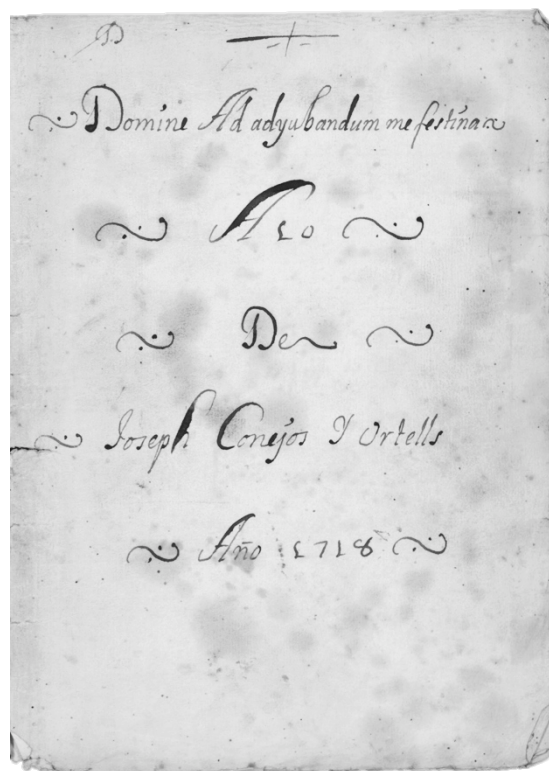 D
Domine Ad adyubandum me festina
A 10
De
Joseph Conejos Y Ortells
Año 1718